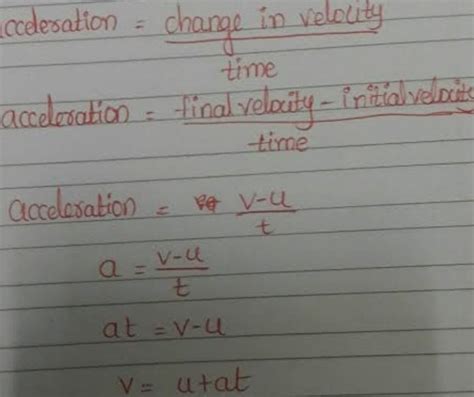 acceleration = change in velocity
time
acceleration = final velocity - initial velocity
time
acceleration = v-u
t
a = v-u
t
at = v-u
v = u+at